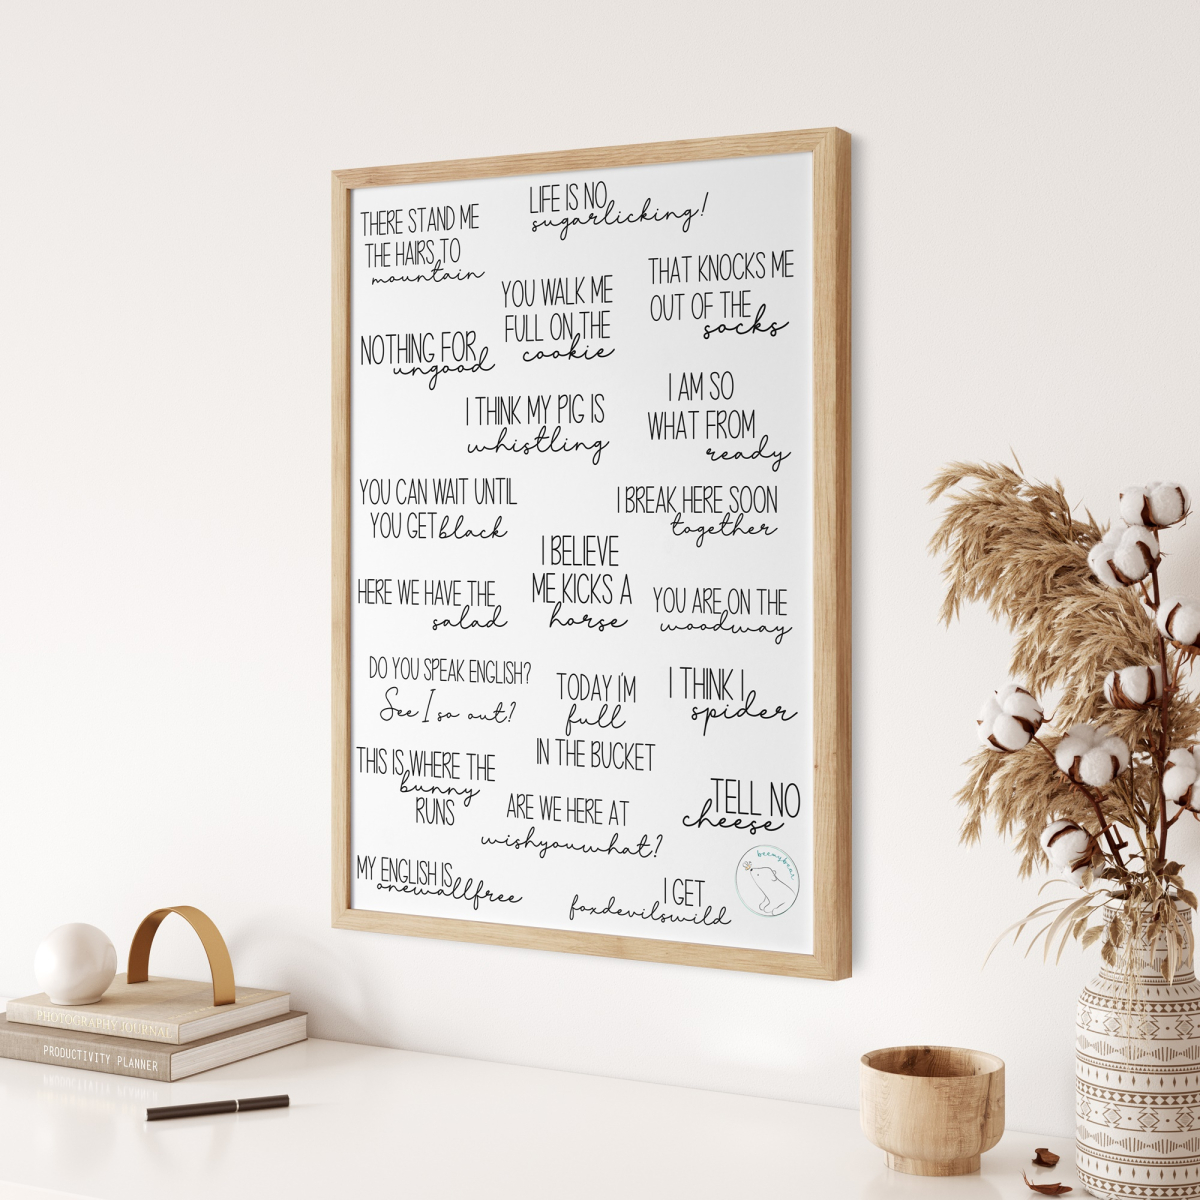 LIFE IS NO
sugarlicking!
THERE STAND ME
THE HAIRS TO
mountain
THAT KNOCKS ME
OUT OF THE
socks
YOU WALK ME
FULL ON THE
cookie
NOTHING FOR
ungood
I THINK MY PIG IS
whistling
I AM SO
WHAT FROM
ready
YOU CAN WAIT UNTIL
YOU GET black
I BREAK HERE SOON
together
I BELIEVE
ME KICKS A
horse
HERE WE HAVE THE
salad
YOU ARE ON THE
woodway
DO YOU SPEAK ENGLISH?
See I so out?
TODAY I'M
full
IN THE BUCKET
I THINK I
spider
THIS IS WHERE THE
bunny
RUNS
ARE WE HERE AT
wishyouwhat?
TELL NO
cheese
MY ENGLISH IS
onewallfree
I GET
foxdevilswild
beemybear
PHOTOGRAPHY JOURNAL
PRODUCTIVITY PLANNER